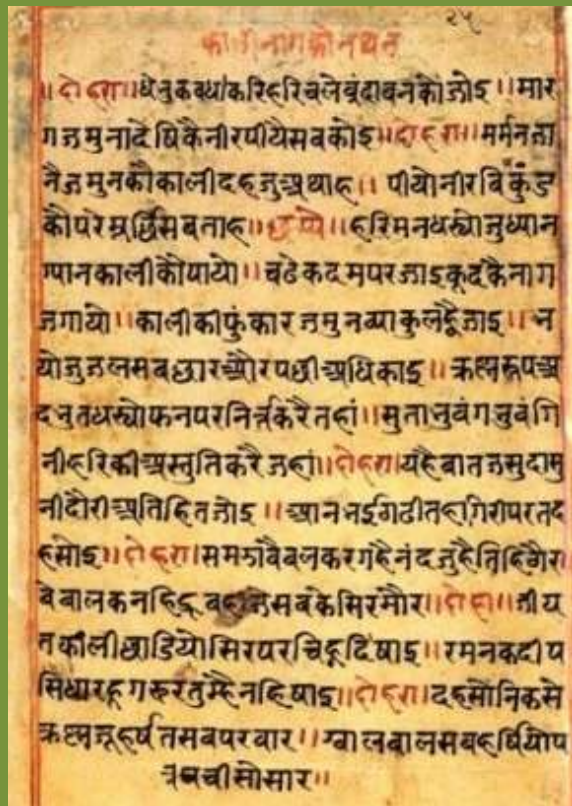 २५
कालीनागकोनथन
॥दोहरा॥धेनुकबधकरिहरिचलेबृंदाबनकोजोइ॥मार
गजमुनादेषिकैनीरपीयैसबकोइ॥दोहरा॥मर्मनजा
नैजमुनकौकालीदहजुअथाह॥पीयोनीरबिकुंड
कौपरेमूर्छिसबताह॥छप्पै॥हरिमनधस्योजुध्यान
ग्यानकालीकौपायो॥चढेकदमपरजाइकूदकैनाग
जगायो॥कालीकीफुंकारजमुनब्याकुलह्वैजाइ॥भ
योजुजलसबछारऔरपछीअधिकाइ॥कृष्णरूपअ
दभुतधस्योफनपरनिर्त्तकरैतहां॥सुताभुवंगभुवंगि
नीहरिकीअस्तुतिकरैजहां॥दोहरा॥यहैबातजसुदासु
नीदौरीअतिहितजोइ॥आनभईगढीतहागिरीपरतद
हसोइ॥दोहरा॥समझावैबलकरगहैनंदजुहैतिहिगैर
वेबालकनहिंहूबहीजेसबकेसिरमौर॥दोहा॥जीय
तकालीछाडियोसिरपरचिह्नदिषाइ॥रमनकदीप
सिधारहूगरूरतुम्हैनहिषाइ॥दोहरा॥दहसौनिकसे
कृष्णजूहर्षतसबपरवार॥ग्वालबालसबहर्षियोप
त्रबचीसोसार॥